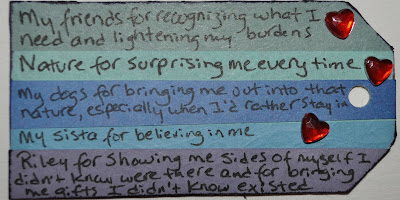 My friends for recognizing what I
need and lightening my burdens
Nature for surprising me every time
My dogs for bringing me out into that
nature, especially when I'd rather stay in
My sista for believing in me
Riley for showing me sides of myself I
didn't know were there and for bringing
me gifts I didn't know existed